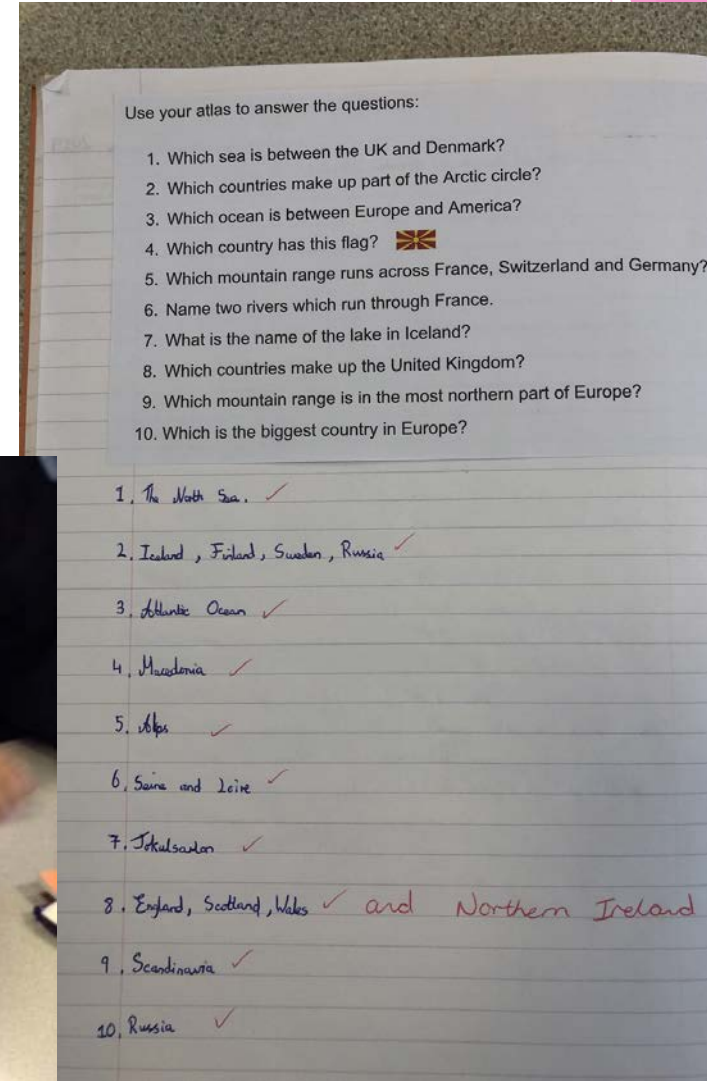 Use your atlas to answer the questions:
1. Which sea is between the UK and Denmark?
2. Which countries make up part of the Arctic circle?
3. Which ocean is between Europe and America?
4. Which country has this flag?
5. Which mountain range runs across France, Switzerland and Germany?
6. Name two rivers which run through France.
7. What is the name of the lake in Iceland?
8. Which countries make up the United Kingdom?
9. Which mountain range is in the most northern part of Europe?
10. Which is the biggest country in Europe?
1. The North Sea.
2. Iceland, Finland, Sweden, Russia
3. Atlantic Ocean
4. Macedonia
5. Alps
6. Seine and Loire
7.
8. England, Scotland, Wales and Northern Ireland
9. Scandinavia
10. Russia